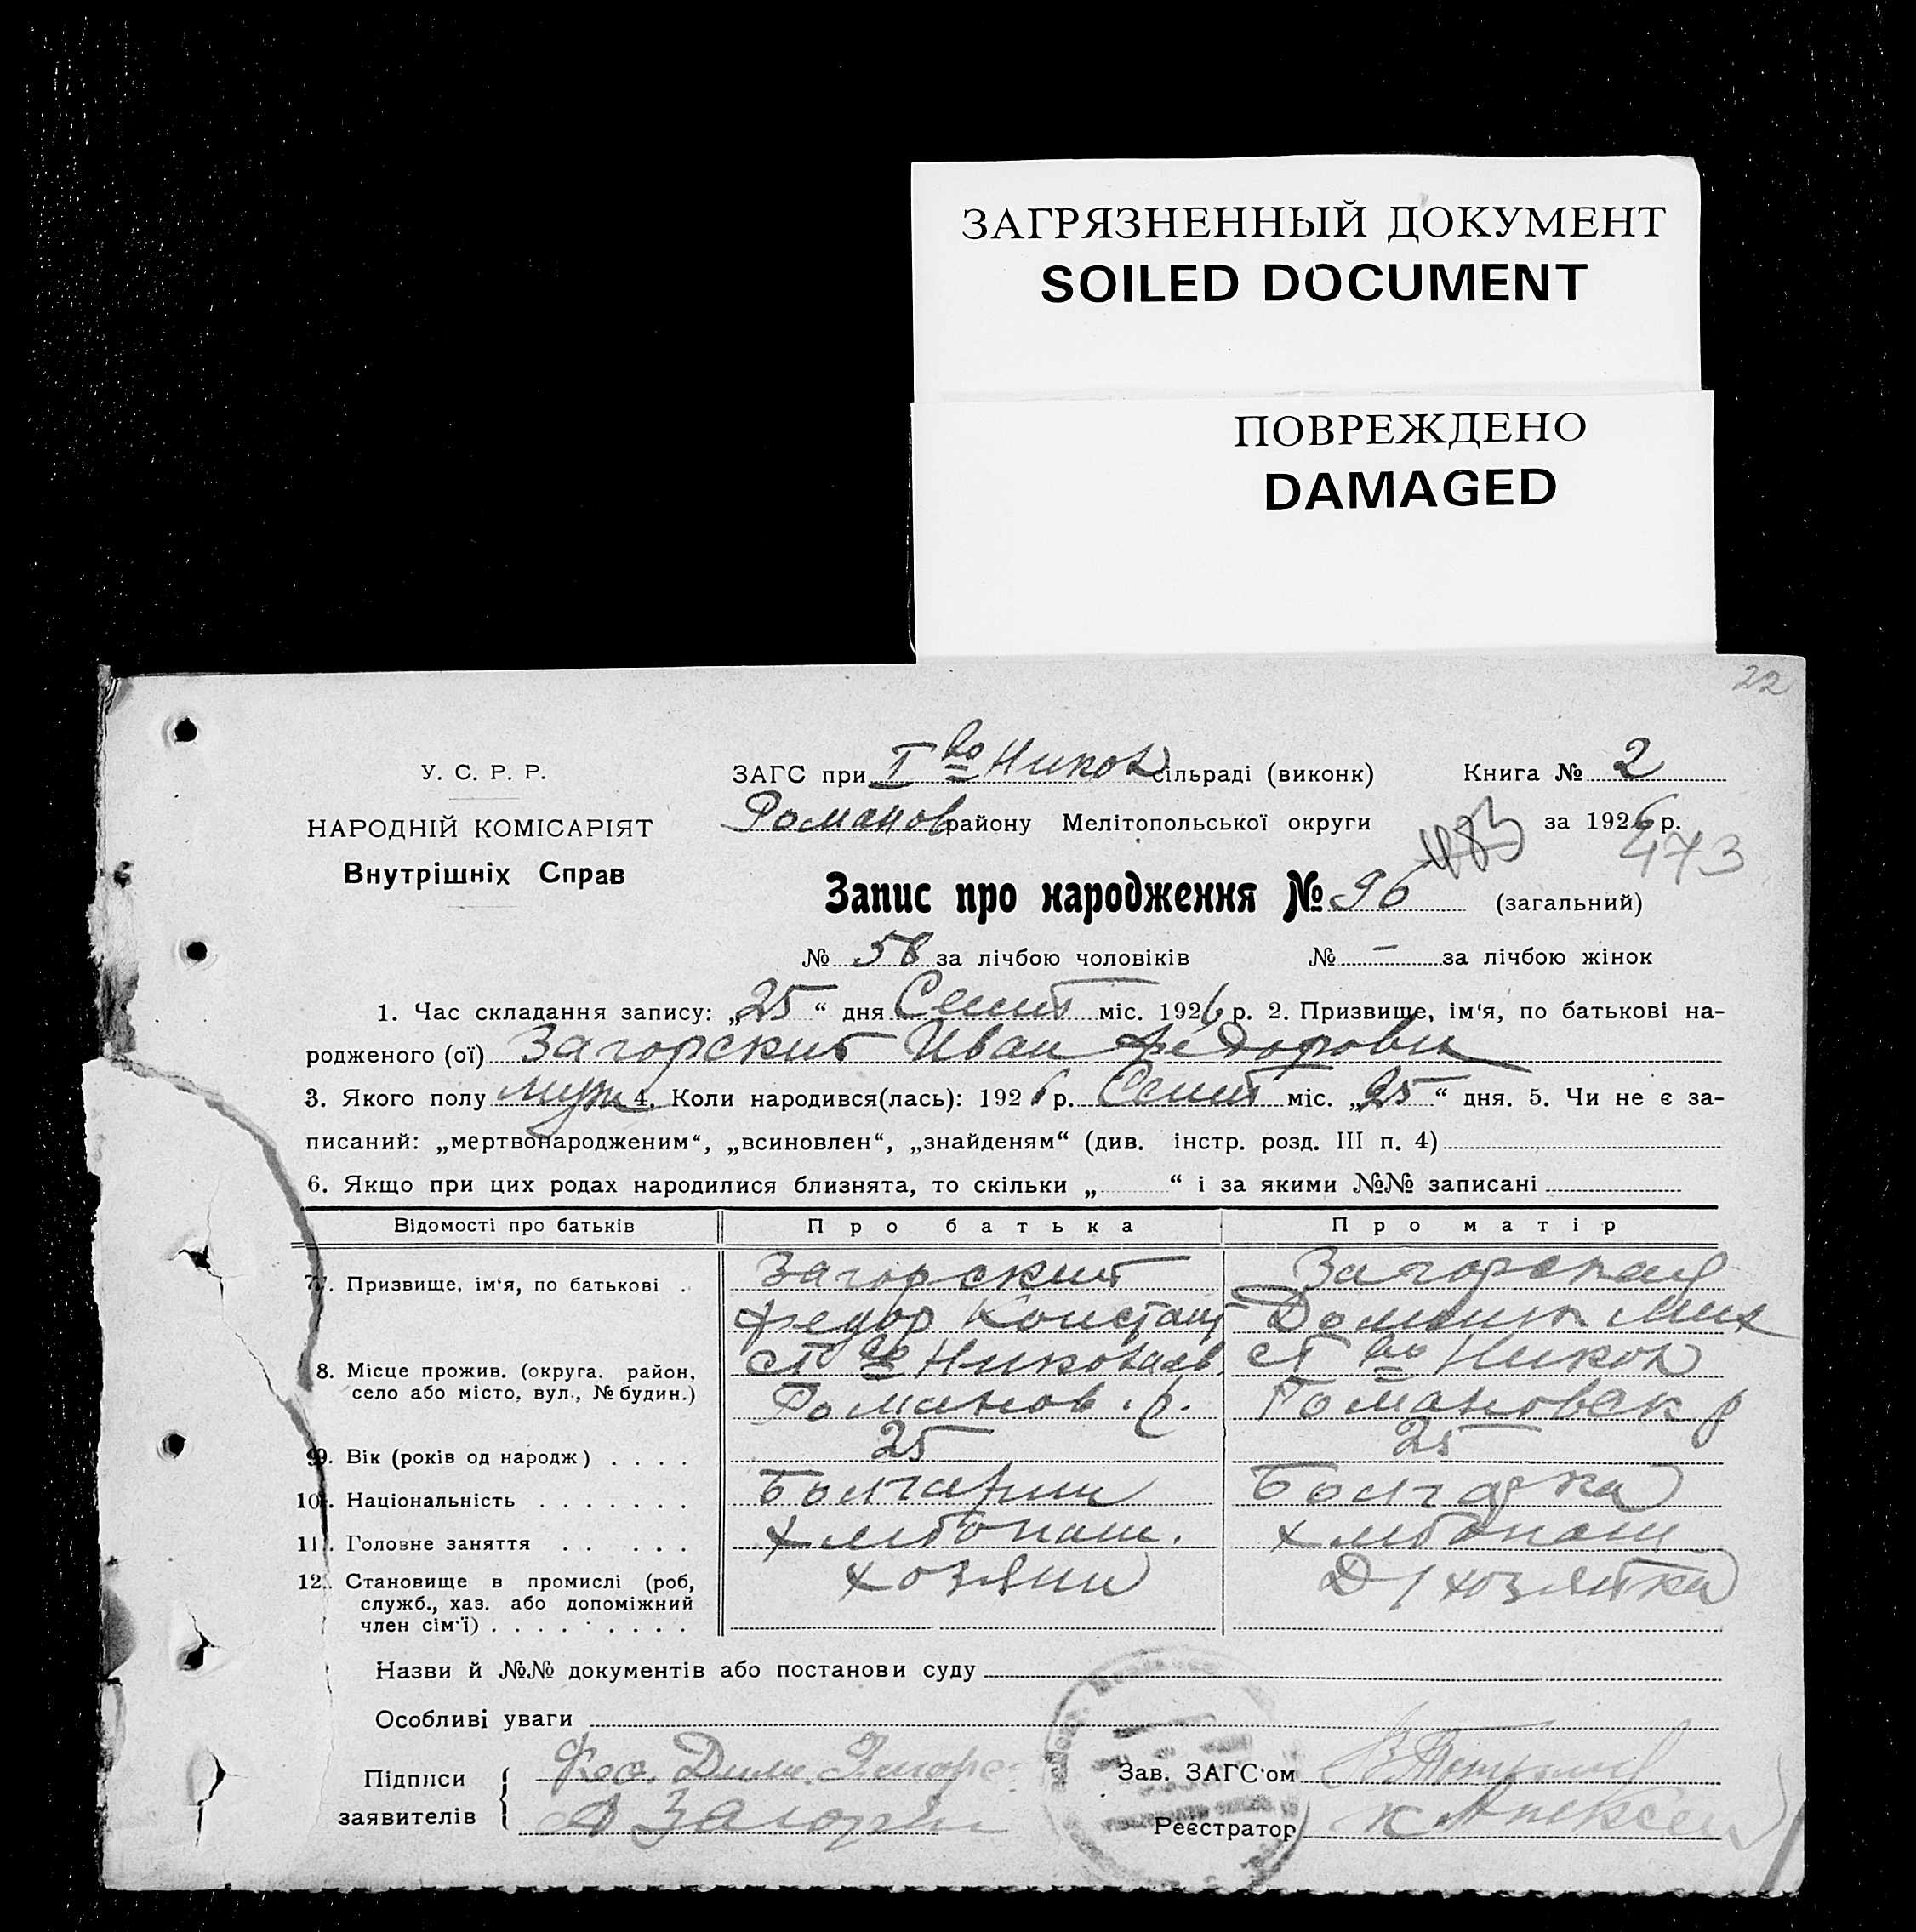 ЗАГРЯЗНЕННЫЙ ДОКУМЕНТ
SOILED DOCUMENT
ПОВРЕЖДЕНО
DAMAGED
22
У. С. Р. Р.
НАРОДНІЙ КОМІСАРІЯТ
Внутрішніх Справ
ЗАГС при I во Никол сільраді (виконк) Книга № 2
Романов району Мелітопольської округи за 1926 р.
483 473
Запис про народження № 96 (загальний)
№ 58 за лічбою чоловіків № — за лічбою жінок
1. Час складання запису: „25“ дня Сент міс. 1926 р. 2. Призвище, ім‘я, по батькові на-
родженого (ої) Загорский Иван Федорови
3. Якого полу муж 4. Коли народився(лась): 1926 р. Сент міс. „25“ дня. 5. Чи не є за-
писаний: „мертвонародженим“, „всиновлен“, „знайденям“ (див. інстр. розд. III п. 4)
6. Якщо при цих родах народилися близнята, то скільки „ “ і за якими №№ записані
Відомості про батьків Про батька Про матір
7. Призвище, ім‘я, по батькові Загорский Загорская
Федор Констант Домник Мих
8. Місце прожив. (округа. район, село або місто, вул., № будин.) во Николаев во Никол
Романов. р. Романовск р
9. Вік (років од народж) 25 25
10. Національність Болгарин Болгарка
11. Головне заняття хлебопаш. хлебопаш
12. Становище в промислі (роб, служб., хаз. або допоміжний член сім‘ї) хозяин Д/хозяйка
Назви й №№ документів або постанови суду
Особливі уваги
Підписи заявителів
Зав. ЗАГС‘ом
Реєстратор К Алексее